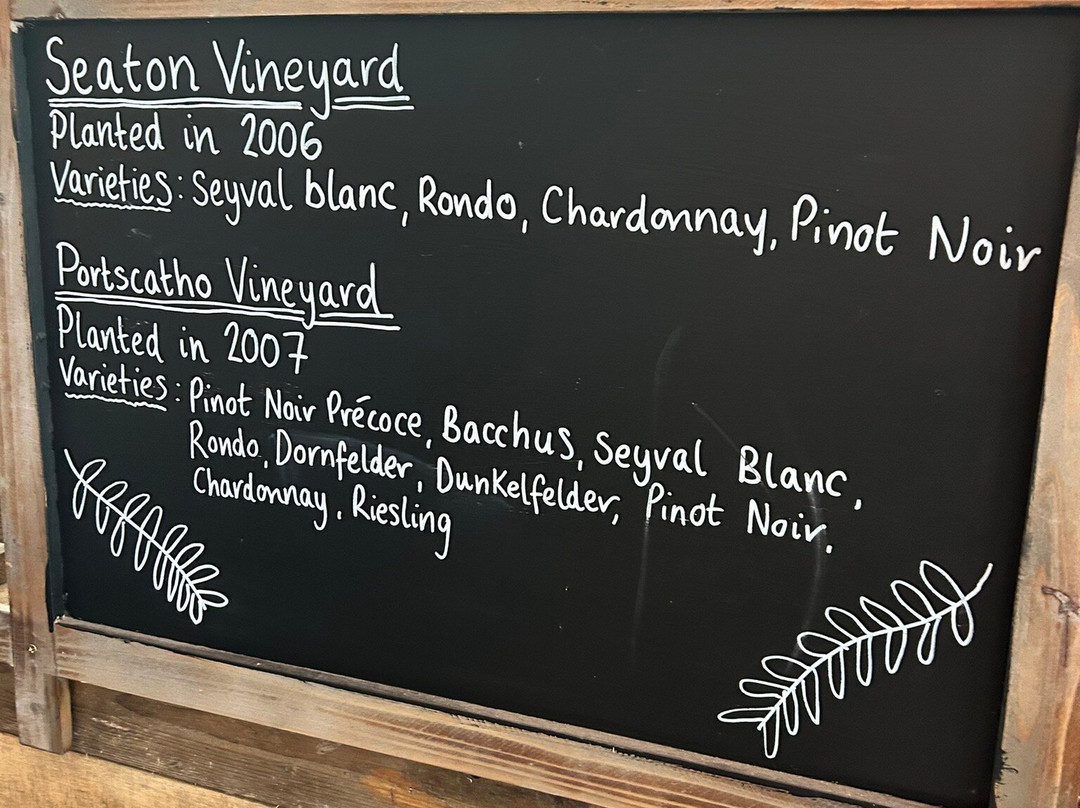 Seaton Vineyard
Planted in 2006
Varieties: Seyval blanc, Rondo, Chardonnay, Pinot Noir
Portscatho Vineyard
Planted in 2007
Varieties: Pinot Noir Précoce, Bacchus, Seyval Blanc,
Rondo, Dornfelder, Dunkelfelder, Pinot Noir.
Chardonnay, Riesling